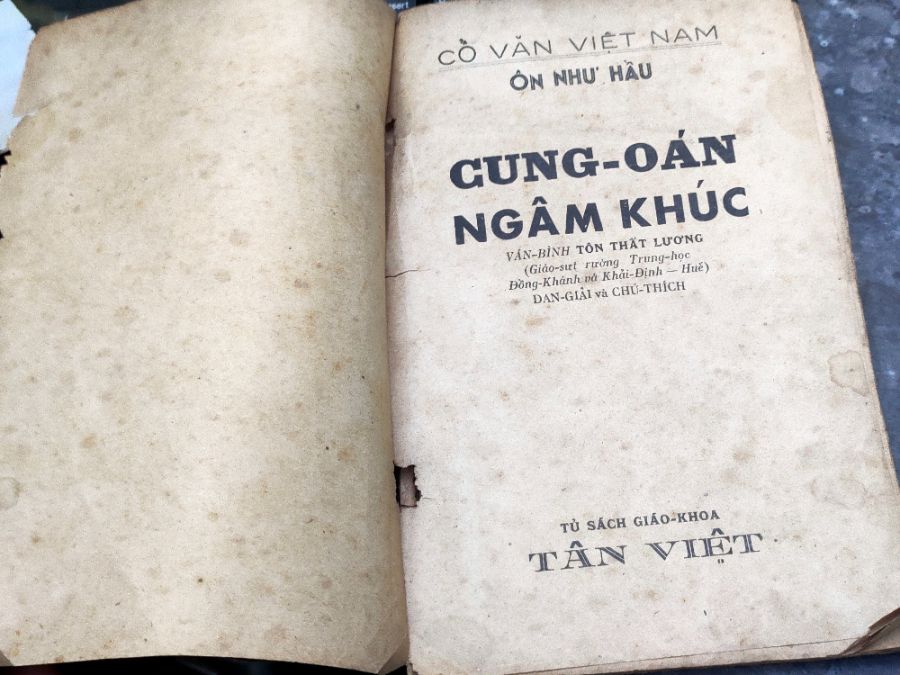 CỔ VĂN VIỆT NAM
ÔN NHƯ HẦU
CUNG-OÁN
NGÂM KHÚC
VÂN-BÌNH TÔN THẤT LƯƠNG
(Giáo-sưt rường Trung-học
Đồng-Khánh và Khải-Định — Huế)
DẪN-GIẢI và CHÚ-THÍCH
TỦ SÁCH GIÁO-KHOA
TÂN VIỆT